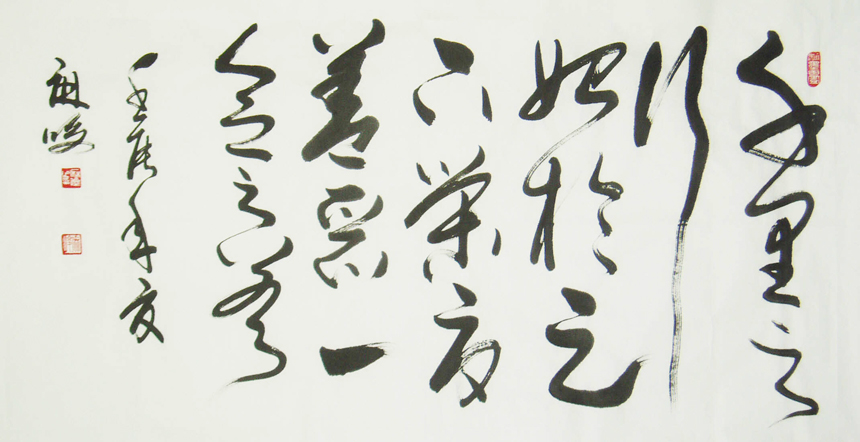 千里之
行
始於足
下榮辱
善惡一
念之差
壬辰年夏